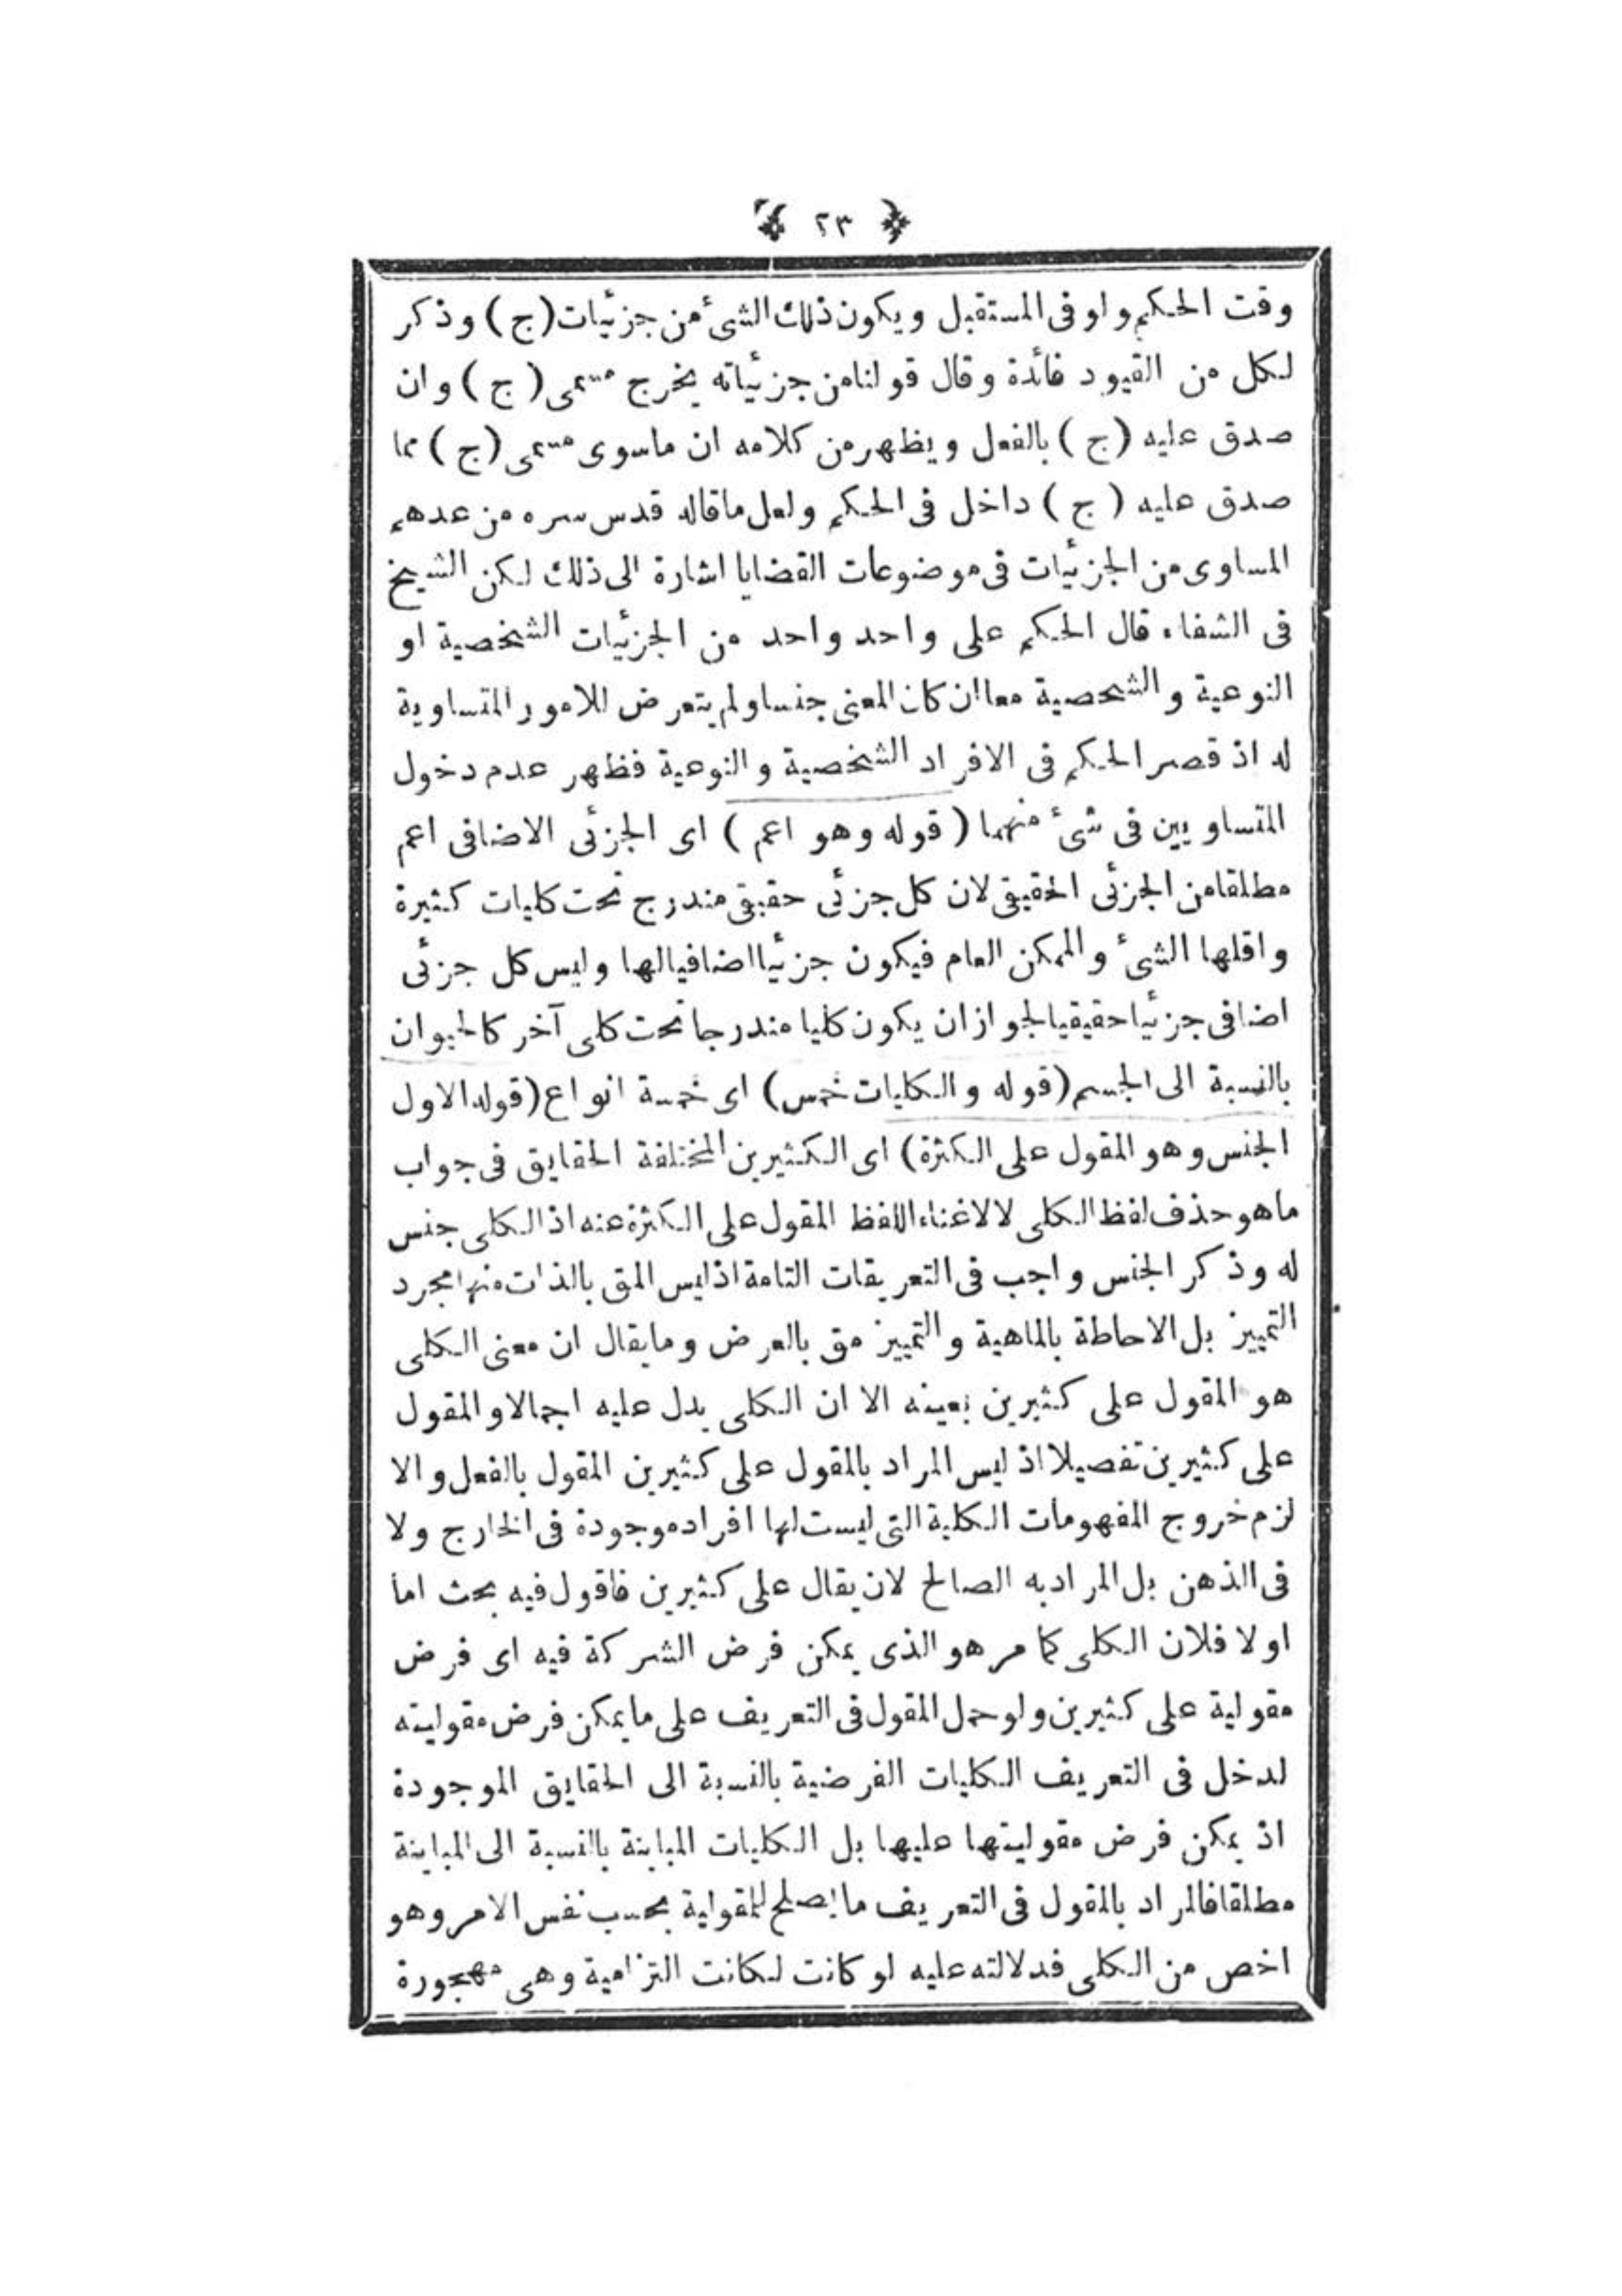 ﴿ ٢٣ ﴾
وقت الحكم ولو فى المستقبل ويكون ذلك الشئ من جزئيات (ج) وذكر
لكل من القيود فائدة وقال قولنا من جزئياته يخرج مسمى (ج) وان
صدق عليه (ج) بالفعل ويظهر من كلامه ان ماسوى مسمى (ج) مما
صدق عليه (ج) داخل فى الحكم ولعل ماقاله قدس سره من عدهم
المساوى من الجزئيات فى موضوعات القضايا اشارة الى ذلك لكن الشيخ
فى الشفاء قال الحكم على واحد واحد من الجزئيات الشخصية او
النوعية والشخصية معا ان كان المعنى جنسا ولم يتعرض للامور المتساوية
له اذ قصر الحكم فى الافراد الشخصية والنوعية فظهر عدم دخول
المتساويين فى شئ منهما (قوله وهو اعم) اى الجزئى الاضافى اعم
مطلقا من الجزئى الحقيقى لان كل جزئى حقيقى مندرج تحت كليات كثيرة
واقلها الشئ والممكن العام فيكون جزئيا اضافيا لها وليس كل جزئى
اضافى جزئيا حقيقيا لجواز ان يكون كليا مندرجا تحت كلى آخر كالحيوان
بالنسبة الى الجسم (قوله والكليات خمس) اى خمسة انواع (قوله الاول
الجنس وهو المقول على الكثرة) اى الكثيرين المختلفة الحقايق فى جواب
ماهو حذف لفظ الكلى لا لاغناء اللفظ المقول على الكثرة عنه اذ الكلى جنس
له وذكر الجنس واجب فى التعريفات التامة اذ ليس المق بالذات منها مجرد
التمييز بل الاحاطة بالماهية والتمييز مق بالعرض وما يقال ان معنى الكلى
هو المقول على كثيرين بعينه الا ان الكلى يدل عليه اجمالا والمقول
على كثيرين تفصيلا اذ ليس المراد بالمقول على كثيرين المقول بالفعل والا
لزم خروج المفهومات الكلية التى ليست لها افراد موجودة فى الخارج ولا
فى الذهن بل المراد به الصالح لان يقال على كثيرين فاقول فيه بحث اما
اولا فلان الكلى كما مر هو الذى يمكن فرض الشركة فيه اى فرض
مقولية على كثيرين ولو حمل المقول فى التعريف على ما يمكن فرض مقوليته
لدخل فى التعريف الكليات الفرضية بالنسبة الى الحقايق الموجودة
اذ يمكن فرض مقوليتها عليها بل الكليات المباينة بالنسبة الى المباينة
مطلقا فالمراد بالمقول فى التعريف ما يصلح للمقولية بحسب نفس الامر وهو
اخص من الكلى فدلالته عليه لو كانت لكانت التزامية وهى مهجورة